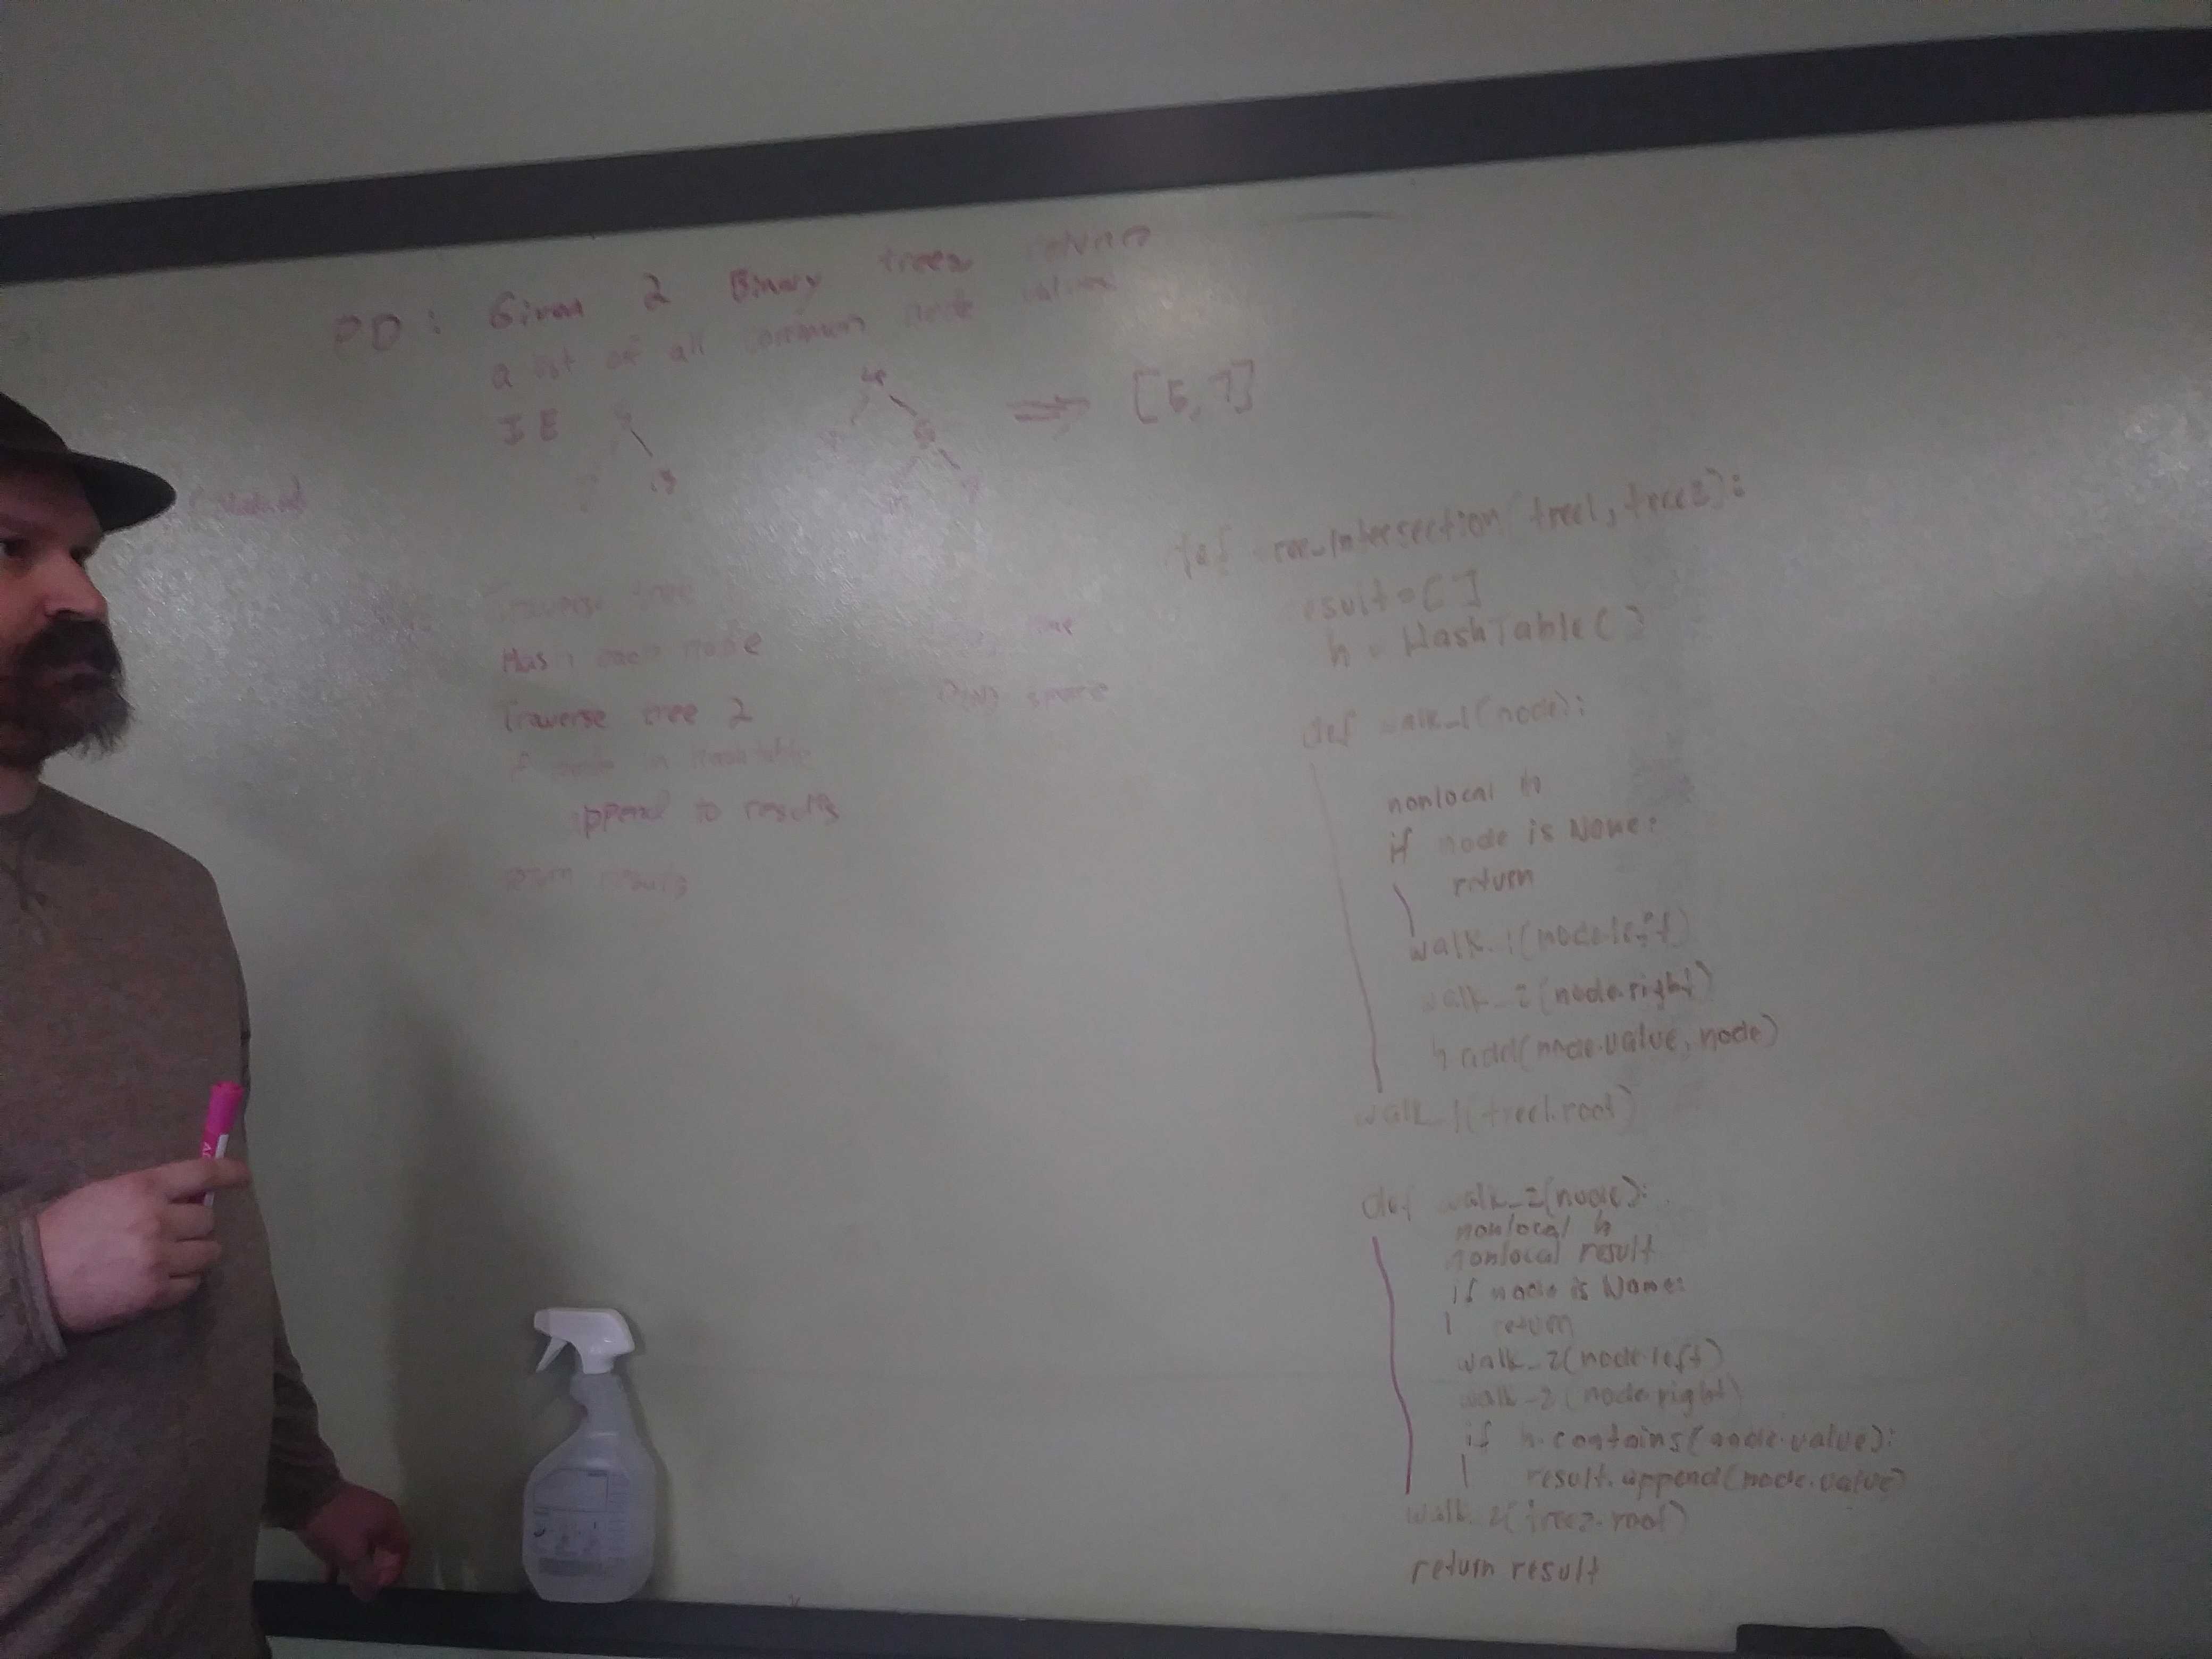 PD: Given 2 Binary trees return
a list of all common node values
IE
4
13
=> [5, 7]
Traverse tree
Hash each node
Traverse tree 2
if node in Hashtable
append to results
return results
O(N) space
def tree_intersection(tree1, tree2):
result = []
h = HashTable()
def walk_1(node):
nonlocal h
if node is None:
return
walk_1(node.left)
walk_2(node.right)
h.add(node.value, node)
walk_1(tree1.root)
def walk_2(node):
nonlocal h
nonlocal result
if node is None:
return
walk_2(node.left)
walk_2(node.right)
if h.contains(node.value):
result.append(node.value)
walk_2(tree2.root)
return result